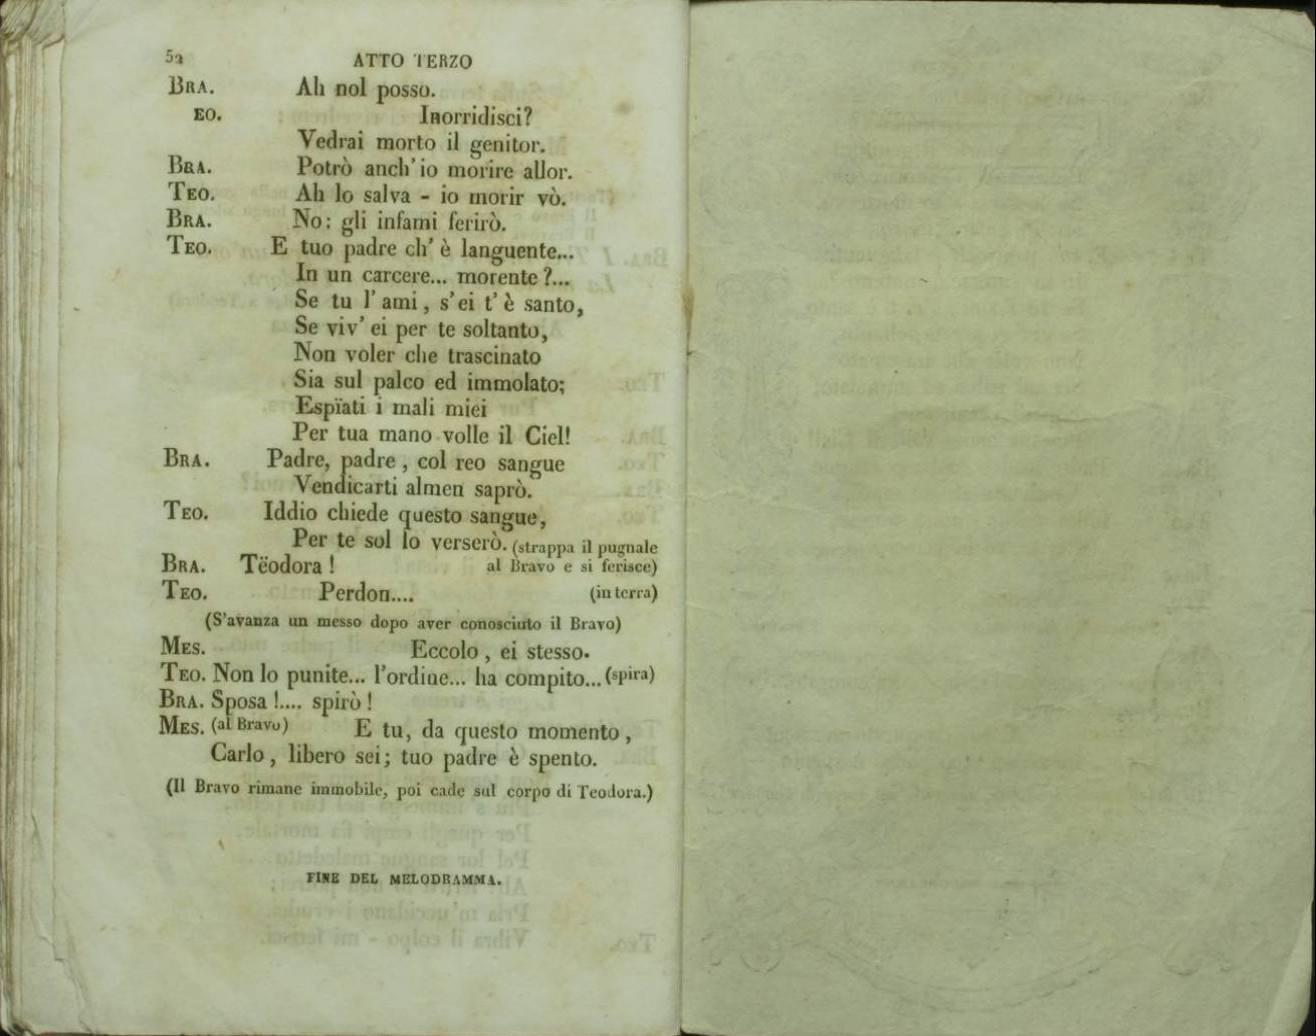 52 ATTO TERZO
BRA. Ah nol posso.
EO. Inorridisci?
Vedrai morto il genitor.
BRA. Potrò anch' io morire allor.
TEO. Ah lo salva - io morir vò.
BRA. No: gli infami ferirò.
TEO. E tuo padre ch' è languente...
In un carcere... morente?...
Se tu l' ami, s'ei t' è santo,
Se viv' ei per te soltanto,
Non voler che trascinato
Sia sul palco ed immolato;
Espïati i mali miei
Per tua mano volle il Ciel!
BRA. Padre, padre, col reo sangue
Vendicarti almen saprò.
TEO. Iddio chiede questo sangue,
Per te sol lo verserò. (strappa il pugnale
BRA. Tëodora! al Bravo e si ferisce)
TEO. Perdon.... (in terra)
(S'avanza un messo dopo aver conosciuto il Bravo)
MES. Eccolo, ei stesso.
TEO. Non lo punite... l'ordine... ha compito... (spira)
BRA. Sposa!.... spirò!
MES. (al Bravo) E tu, da questo momento,
Carlo, libero sei; tuo padre è spento.
(Il Bravo rimane immobile, poi cade sul corpo di Teodora.)
FINE DEL MELODRAMMA.